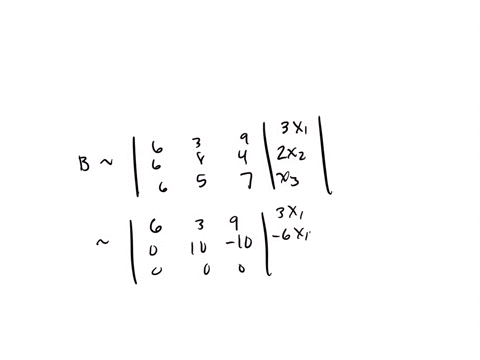 B ~ | 6 3 9 | 3x₁ |
| 6 8 4 | 2x₂ |
| 6 5 7 | x₃ |
~ | 6 3 9 | 3x₁
| 0 10 -10 | -6x₁
| 0 0 0 |